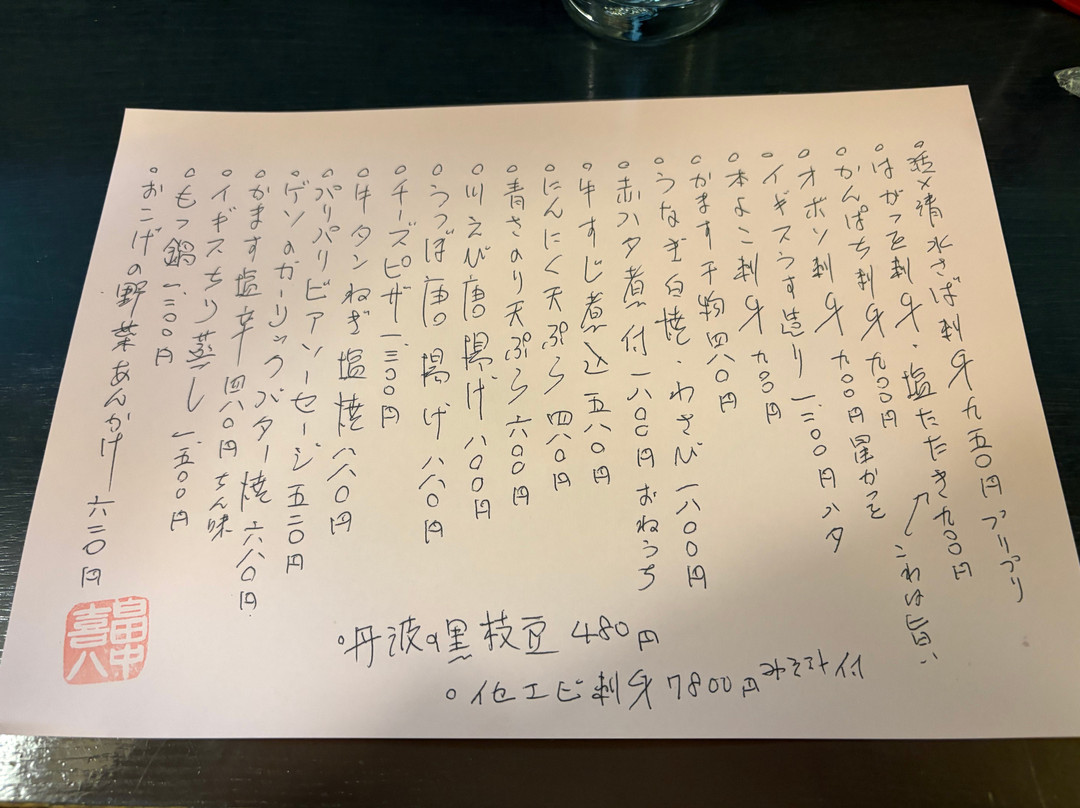 活〆清水さば刺身九五〇円プリプリ
はがつを刺身・塩たたき九〇〇円
これは旨い
かんぱち刺身九〇〇円
オボソ刺身九〇〇円星かつを
イギスうす造り一、二〇〇円ハタ
本よこ刺身九〇〇円
かます干物四八〇円
うなぎ白焼・わさび一八〇〇円
赤ハタ煮付一八〇〇円おねうち
牛すじ煮込五八〇円
にんにく天ぷら四八〇円
青さのり天ぷら六〇〇円
川えび唐揚げ八〇〇円
うつぼ唐揚げ八八〇円
チーズピザ一、三〇〇円
牛タンねぎ塩焼八八〇円
パリパリビアソーセージ五二〇円
ゲソのガーリックバター焼六八〇円
かます塩辛ー四八〇円ちん味
イギスちり蒸し一、五〇〇円
もつ鍋一、三〇〇円
おこげの野菜あんかけー六三〇円
丹波の黒枝豆480円
伊セエビ刺身7800円みそ汁付
畠中
喜八